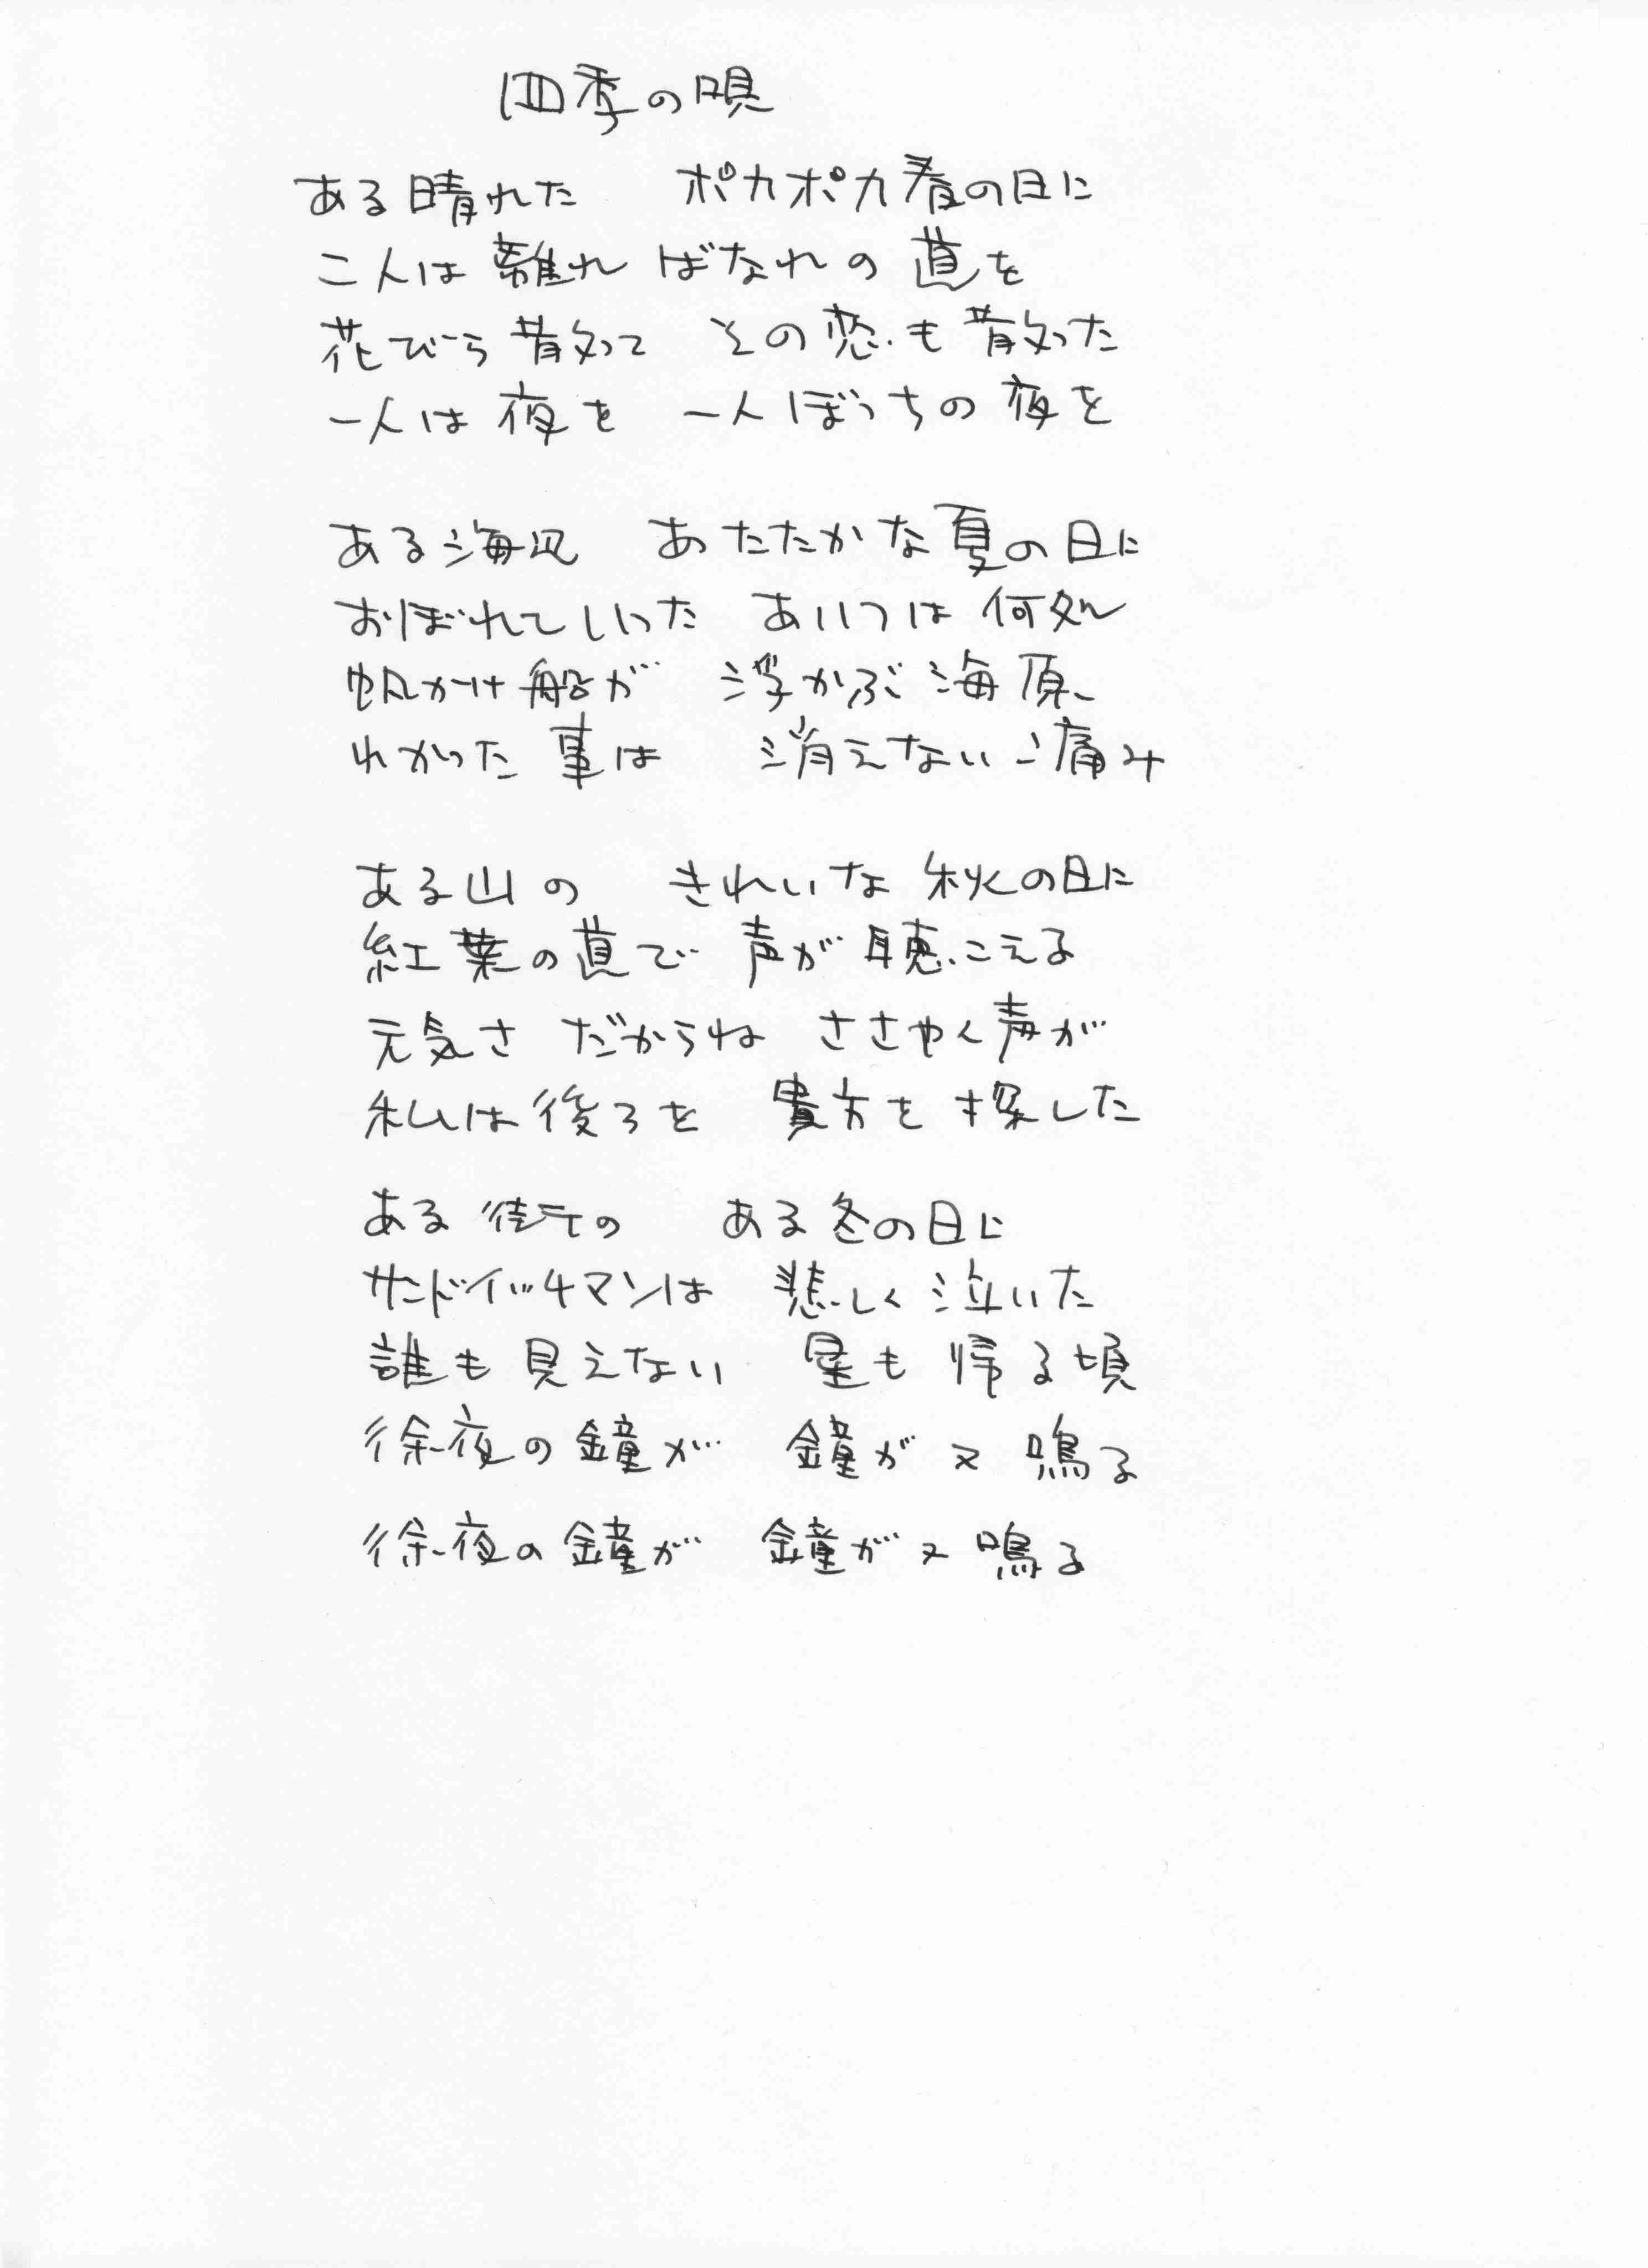 四季の唄
ある晴れた ポカポカ春の日に
二人は離ればなれの道を
花びら散って その恋も散った
一人は夜を 一人ぼっちの夜を
ある海辺 あたたかな夏の日に
おぼれていった あいつは何処
帆かけ船が 浮かぶ海原
わかった事は 消えない心痛み
ある山の きれいな秋の日に
紅葉の道で 声が聴こえる
元気さ だからね ささやく声が
私は後ろを 貴方を探した
ある街の ある冬の日に
サンドイッチマンは 悲しく泣いた
誰も見えない 星も帰る頃
徐夜の鐘が 鐘が又鳴る
徐夜の鐘が 鐘が又鳴る